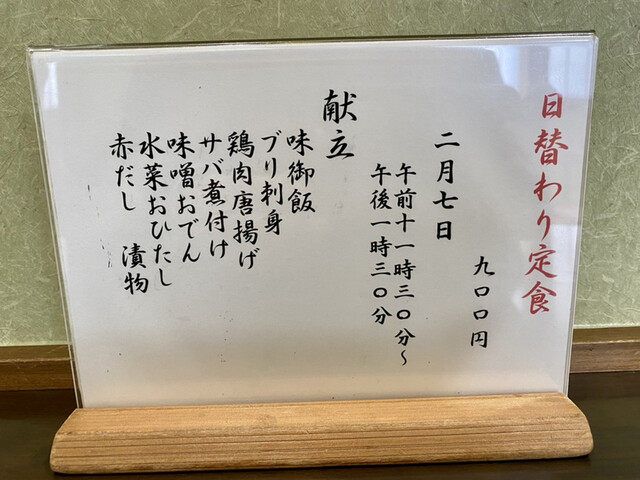 日替わり定食
九〇〇円
二月七日
午前十一時三〇分～
午後一時三〇分
献立
味御飯
ブリ刺身
鶏肉唐揚げ
サバ煮付け
味噌おでん
水菜おひたし
赤だし　漬物